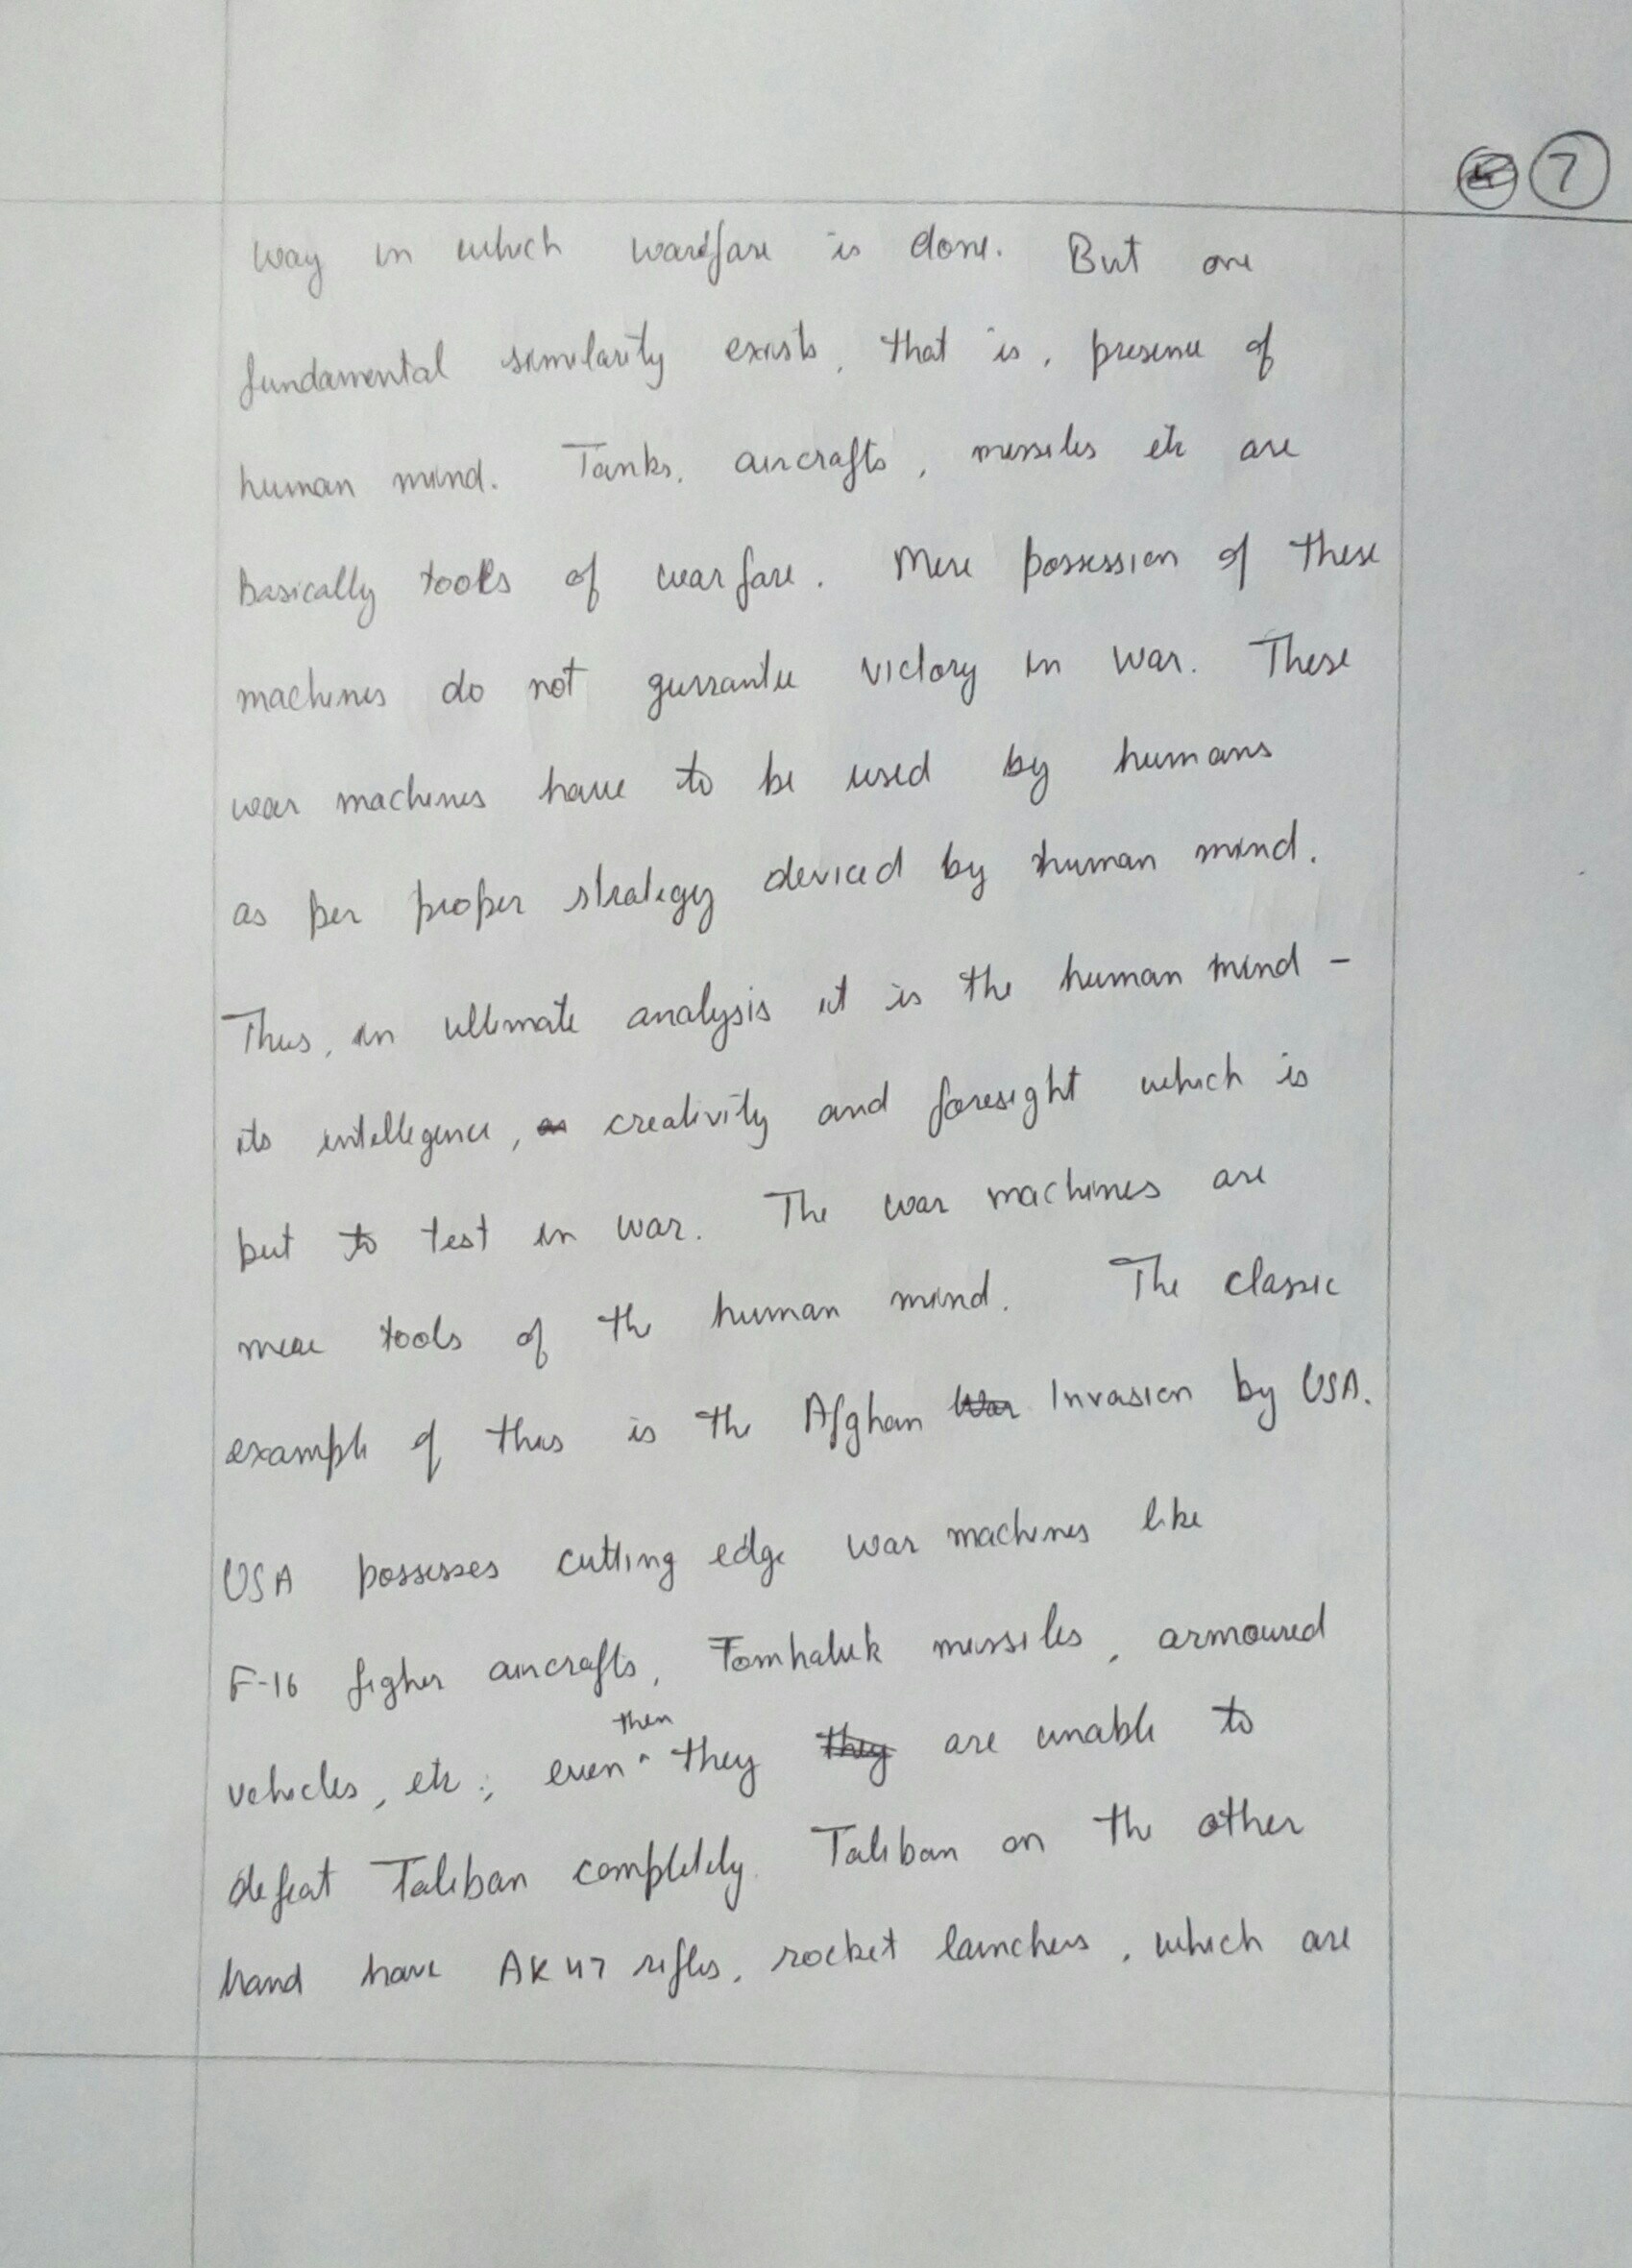 7
way in which warfare is done. But one
fundamental similarity exists, that is, presence of
human mind. Tanks, aircrafts, missiles etc are
basically tools of warfare. Mere possession of these
machines do not gurrantee victory in war. These
war machines have to be used by humans
as per proper strategy deviced by human mind.
Thus, in ultimate analysis it is the human mind -
its intellegence, creativity and foresight which is
put to test in war. The war machines are
mere tools of the human mind. The classic
example of this is the Afghan War Invasion by USA.
USA possesses cutting edge war machines like
F-16 figher aircrafts, Tomhaluk missiles, armoured
vehicles, etc.; even then they they are unable to
defeat Taliban completely. Taliban on the other
hand have AK 47 rifles, rocket launchers, which are